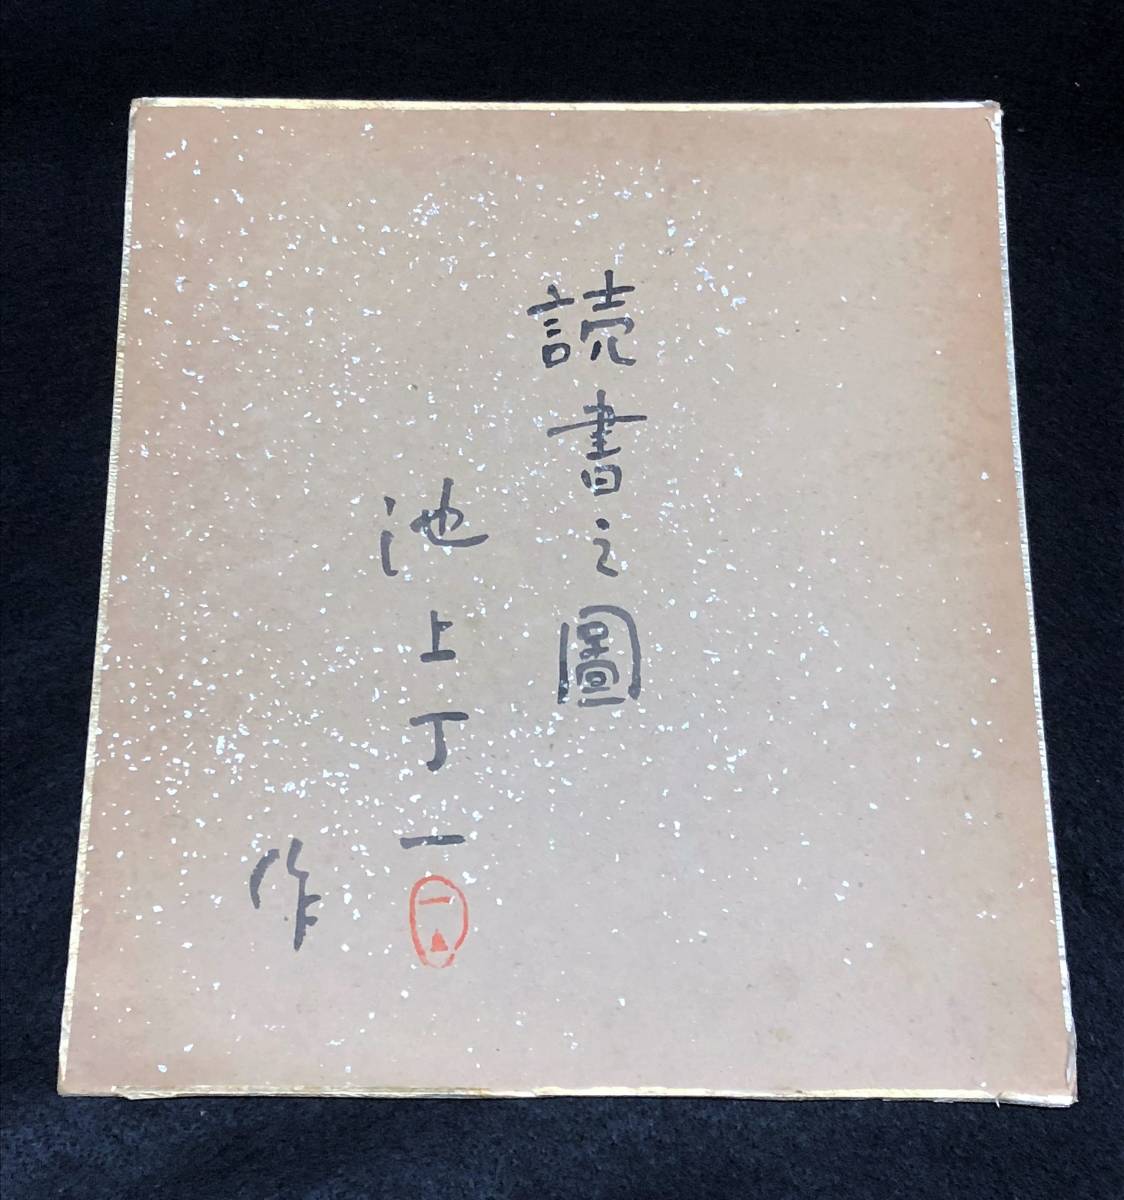 読書之圖
池上丁一
作